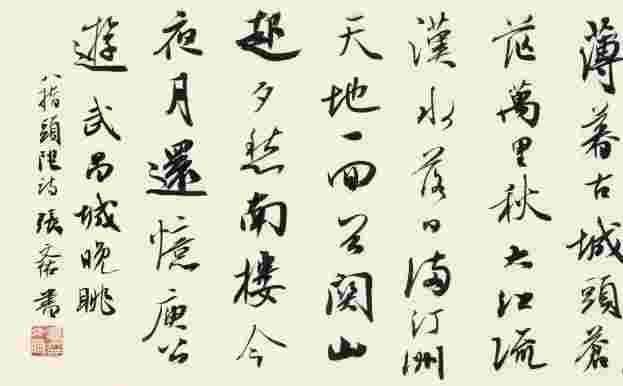 薄暮古城頭蒼
茫萬里秋大江流
漢水落日滿汀洲
天地一回首關山
起夕愁南樓今
夜月還憶庾公
遊 武昌城晚眺
八指頭陀詩 張書